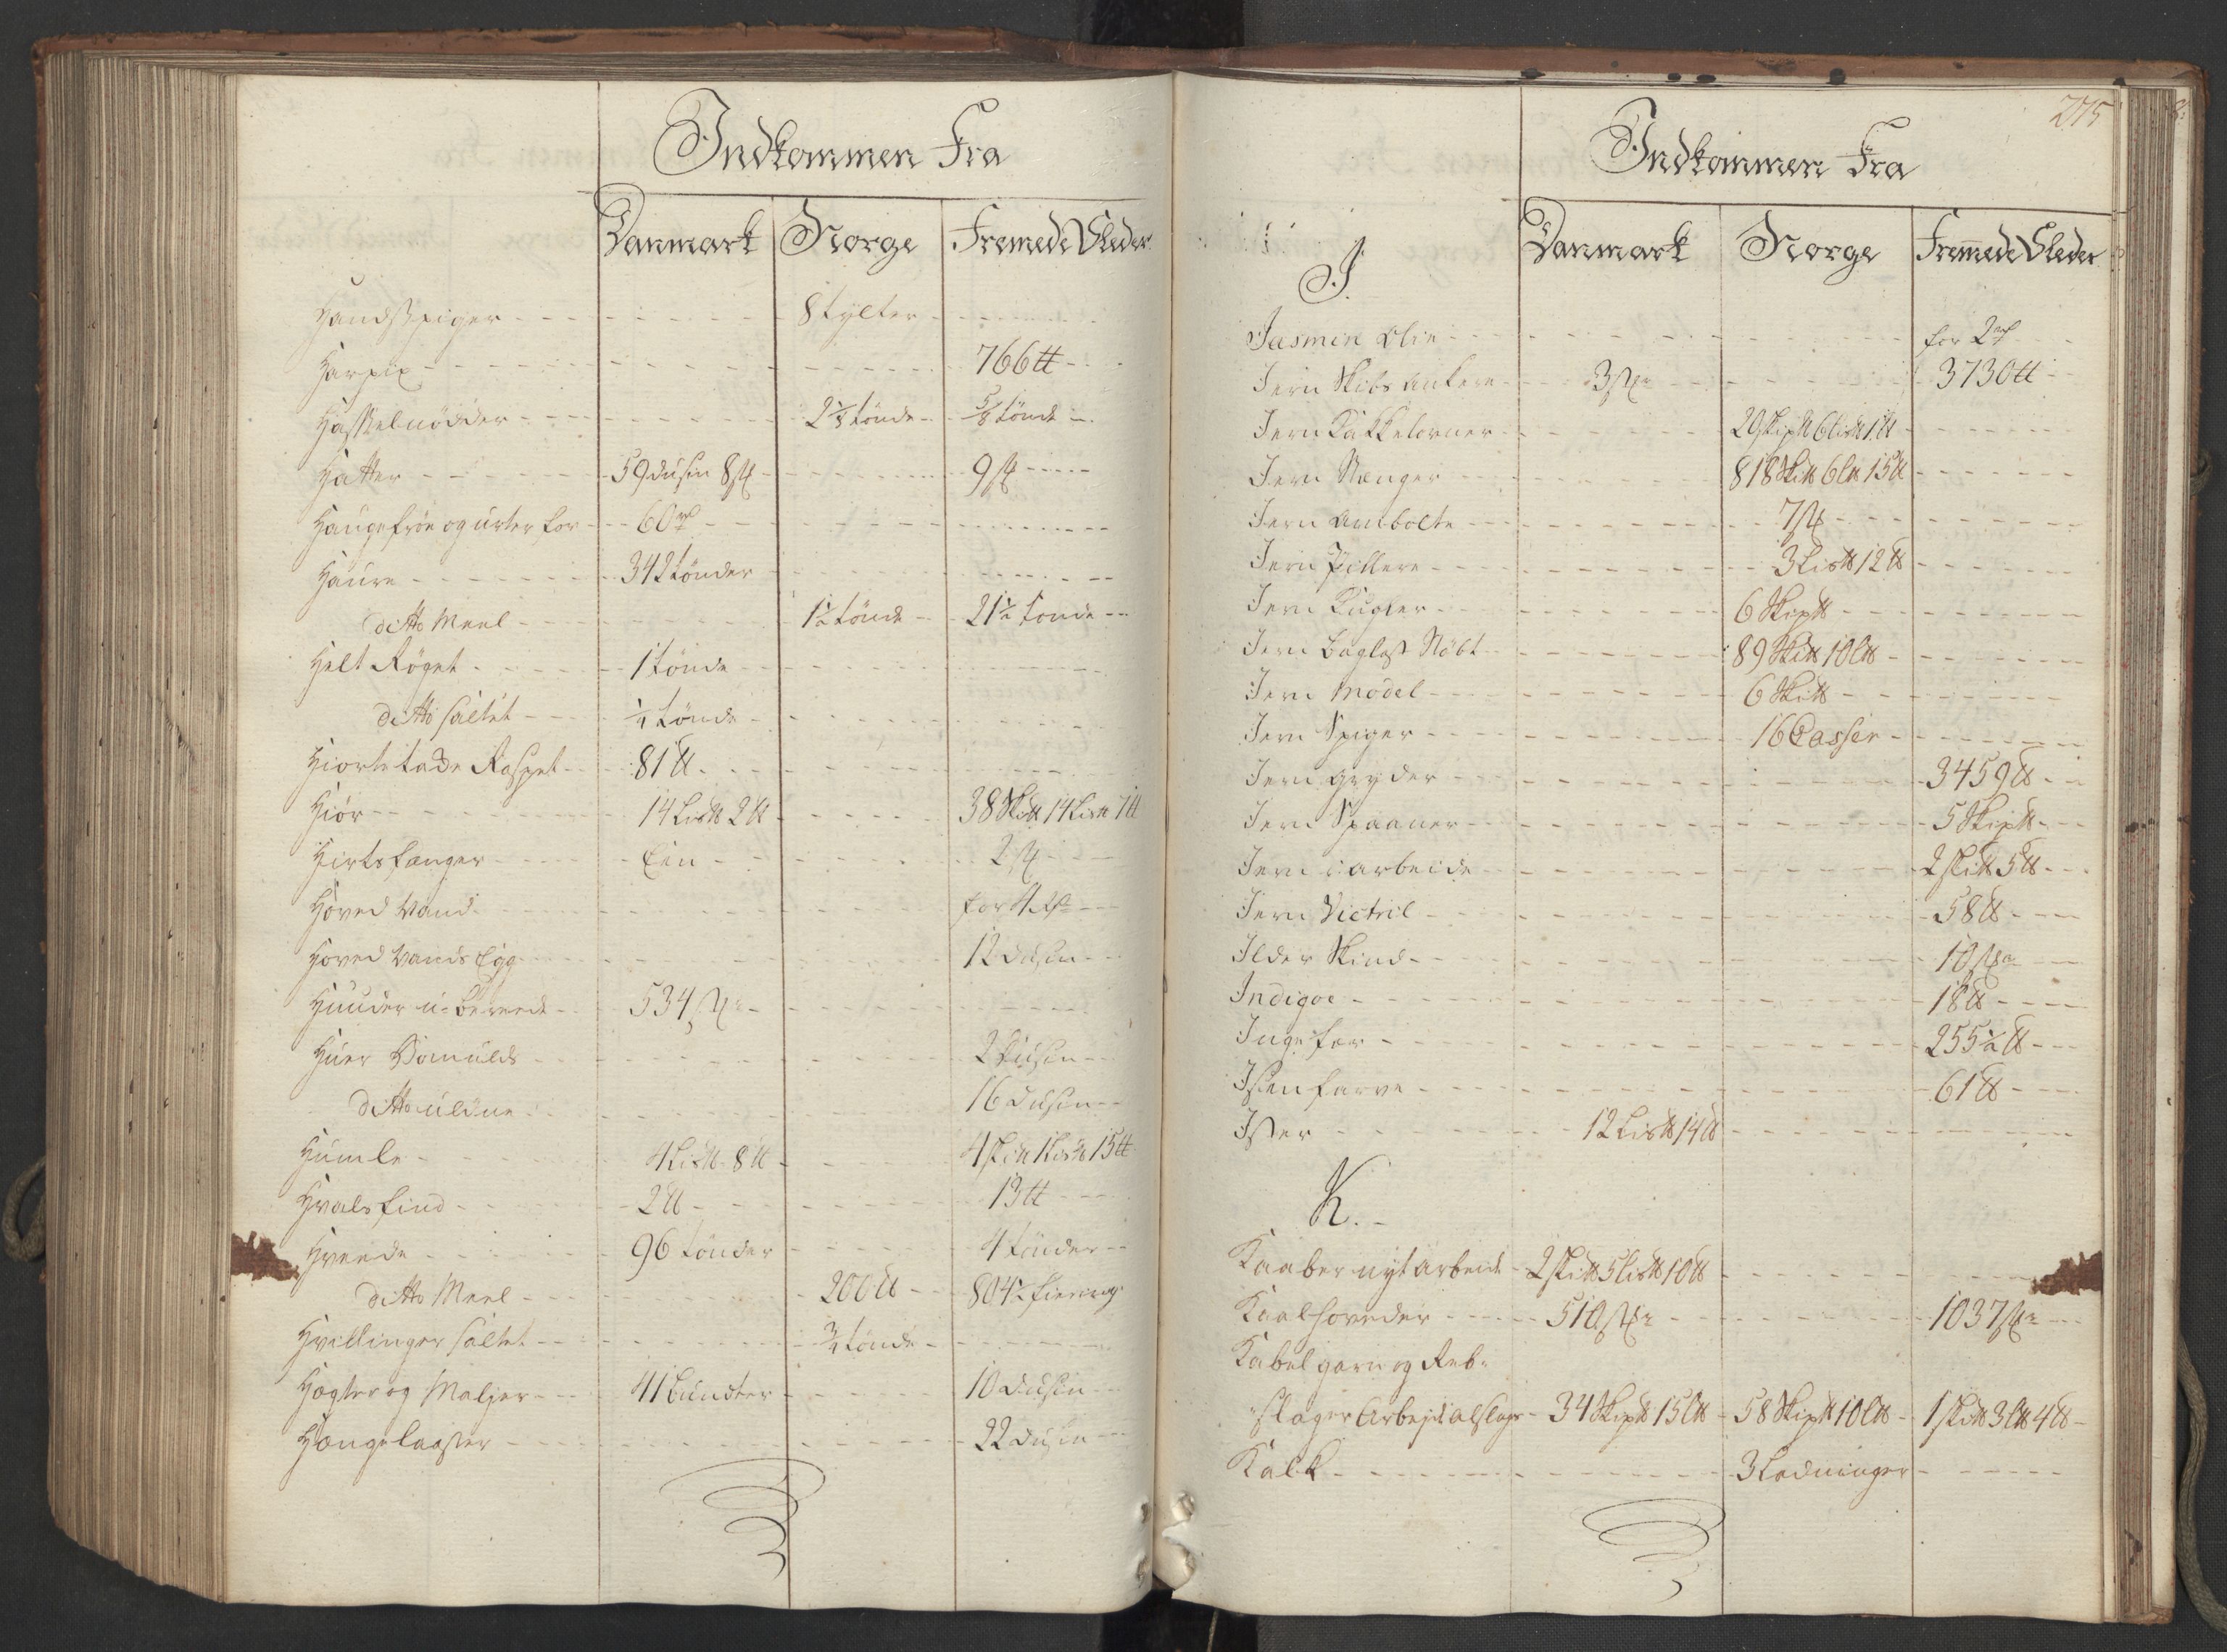 Indkommen Fra
Danmark Norge Fremede Steder
Handspiger - - - 8 tylter - - -
Harpix - - - 766 ℔ - -
Hasselnødder - - - 2 1/8 tönde - 5/8 tönde -
Hatter - - - 59 dusin 8 st - - - 9 st - - -
Haugefrøe og urter for - - 60 rd - - -
Haure - - - 342 tönder - - -
ditto Meel - - - 1 1/2 tönde - 21 1/2 tonde - -
Helt Röget - - - 1 tönde - - -
ditto saltet - - - 1/4 tönde - - -
Hiortetade Raspet - - 81 ℔ - - -
Hiör - - - 14 Lis℔ 2 ℔ - - - 38 Ski℔ 14 Lis℔ 7 ℔
Hirtsfænger - - - Een - - - 2 st - - -
Hoved Vand - - - for 4 - -
Hoved Vands Egg - - - 12 dusin - -
Huuder u-bereede - - 534 st - - -
Huer Bomulds - - - 2 Dusin - -
ditto uldne - - - 16 dusin - -
Humle - - - 4 Lis℔ 8 ℔ - - - 4 ski℔ 1 Lis℔ 15 ℔
Hvalsfind - - - 2 ℔ - - - 13 ℔ - - -
Hveede - - - 96 tönder - - - 4 tönder - -
ditto Meel - - - 200 ℔ - - 804 1/2
Hvillinger saltet - - - 3/4 tönde - - -
Hægter og Maljer - - - 41 bundter - - - 10 dusin - -
Hængelaasser - - - 22 dusin - -
275
Indkommen Fra
Danmark Norge Fremmede Steder
J
Jasmin Olie - - - for 2 - -
Jern Skibs Ankere - - - 3 st - - - 3730 ℔ - -
Jern Kakkelovner - - - 20 skip℔ 6 lis℔ 1 ℔ - - -
Jern Stænger - - - 818 Ski℔ 6 l℔ 15 ℔ - - -
Jern Ambolte - - - 7 st - - -
Jern Pillere - - - 3 Lis℔ 12 ℔ - - -
Jern Kugler - - - 6 Skip℔ - - -
Jern Baglast Stöbt - - - 89 Ski℔ 10 l℔ - - -
Jern Model - - - 6 Ski℔ - - -
Jern Spiger - - - 16 Casser - - -
Jern gryder - - - 3459 ℔ - -
Jern Spaaner - - - 5 Skip℔ - -
Jern i arbeide - - - 2 ski℔ 5 ℔ - -
Jern Victril - - - 58 ℔ - - -
Ilder Skind - - - 10 st - -
Indigoe - - - 18 ℔ - - -
Ingefær - - - 255 1/2 ℔ - -
Isenfarve - - - 61 ℔ - - -
Ister - - - 12 Lis℔ 14 ℔ - - -
K. -
Kaaber nyt arbeide - 2 ski℔ 5 lis℔ 10 ℔ - - -
Kaalhoveder - - - 510 st - - - 1037 st - -
Kabelgarn og Reb-
slager Arbejd alslags - 34 Skip℔ 15 l℔ - 58 Skip℔ 10 l℔ - 1 ski℔ 3 l℔ 4 ℔ -
Kalk - - - 3 Ladninger - - -